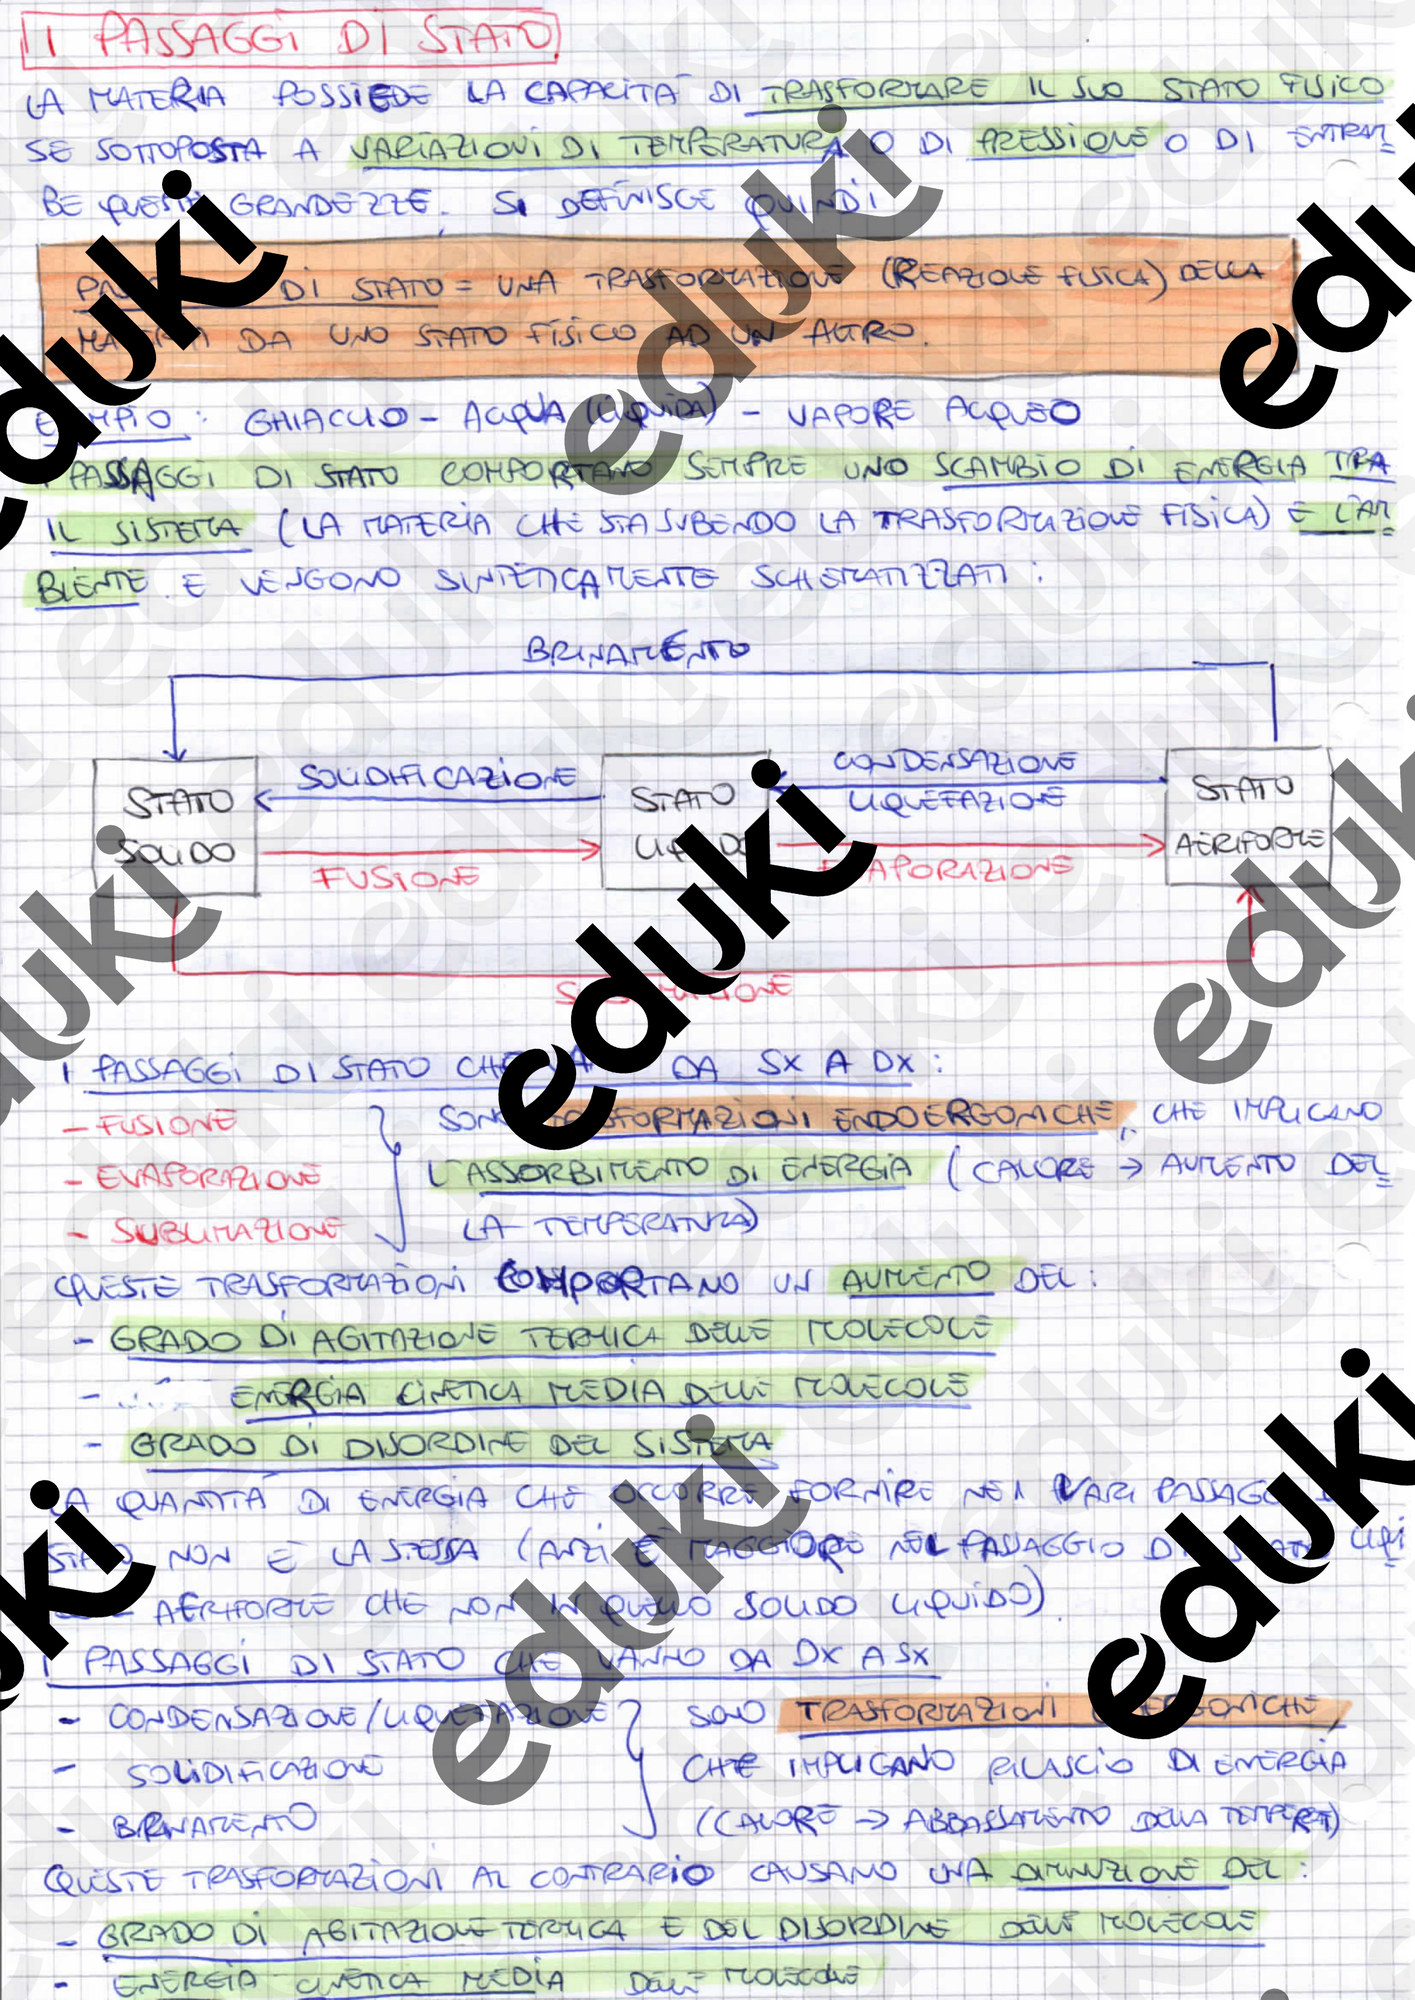 I PASSAGGI DI STATO
LA MATERIA POSSIEDE LA CAPACITÀ DI TRASFORMARE IL SUO STATO FISICO
SE SOTTOPOSTA A VARIAZIONI DI TEMPERATURA O DI PRESSIONE O DI ENTRAM
BE QUESTE GRANDEZZE. SI DEFINISCE QUINDI
DI STATO = UNA TRASFORMAZIONE (REAZIONE FISICA) DELLA
MATERIA DA UNO STATO FISICO AD UN ALTRO.
ESEMPIO: GHIACCIO - ACQUA (LIQUIDA) - VAPORE ACQUEO
I PASSAGGI DI STATO COMPORTANO SEMPRE UNO SCAMBIO DI ENERGIA TRA
IL SISTEMA (LA MATERIA CHE STA SUBENDO LA TRASFORMAZIONE FISICA) E L'AM
BIENTE. E VENGONO SINTETICAMENTE SCHEMATIZZATI:
BRINAMENTO
STATO SOLIDO
SOLIDIFICAZIONE
FUSIONE
STATO LIQUIDO
CONDENSAZIONE
LIQUEFAZIONE
EVAPORAZIONE
STATO AERIFORME
SUBLIMAZIONE
I PASSAGGI DI STATO CHE VANNO DA SX A DX:
- FUSIONE
- EVAPORAZIONE
- SUBLIMAZIONE
SONO TRASFORMAZIONI ENDOERGONICHE, CHE IMPLICANO
L'ASSORBIMENTO DI ENERGIA (CALORE → AUMENTO DEL
LA TEMPERATURA)
QUESTE TRASFORMAZIONI COMPORTANO UN AUMENTO DEL:
- GRADO DI AGITAZIONE TERMICA DELLE MOLECOLE
- ENERGIA CINETICA MEDIA DELLE MOLECOLE
- GRADO DI DISORDINE DEL SISTEMA
LA QUANTITÀ DI ENERGIA CHE OCCORRE FORNIRE NEI VARI PASSAGGI DI
STATO NON È LA STESSA (ANZI È MAGGIORE NEL PASSAGGIO DI STATO LIQUI
DO - AERIFORME CHE NON IN QUELLO SOLIDO LIQUIDO).
I PASSAGGI DI STATO CHE VANNO DA DX A SX
- CONDENSAZIONE/LIQUEFAZIONE
- SOLIDIFICAZIONE
- BRINAMENTO
SONO TRASFORMAZIONI ESOERGONICHE,
CHE IMPLICANO RILASCIO DI ENERGIA
(CALORE → ABBASSAMENTO DELLA TEMPERAT)
QUESTE TRASFORMAZIONI AL CONTRARIO CAUSANO UNA DIMINUZIONE DEL:
- GRADO DI AGITAZIONE TERMICA E DEL DISORDINE DELLE MOLECOLE
- ENERGIA CINETICA MEDIA DELLE MOLECOLE
eduki
eduki
eduki
eduki
eduki
eduki
eduki
eduki
eduki
eduki